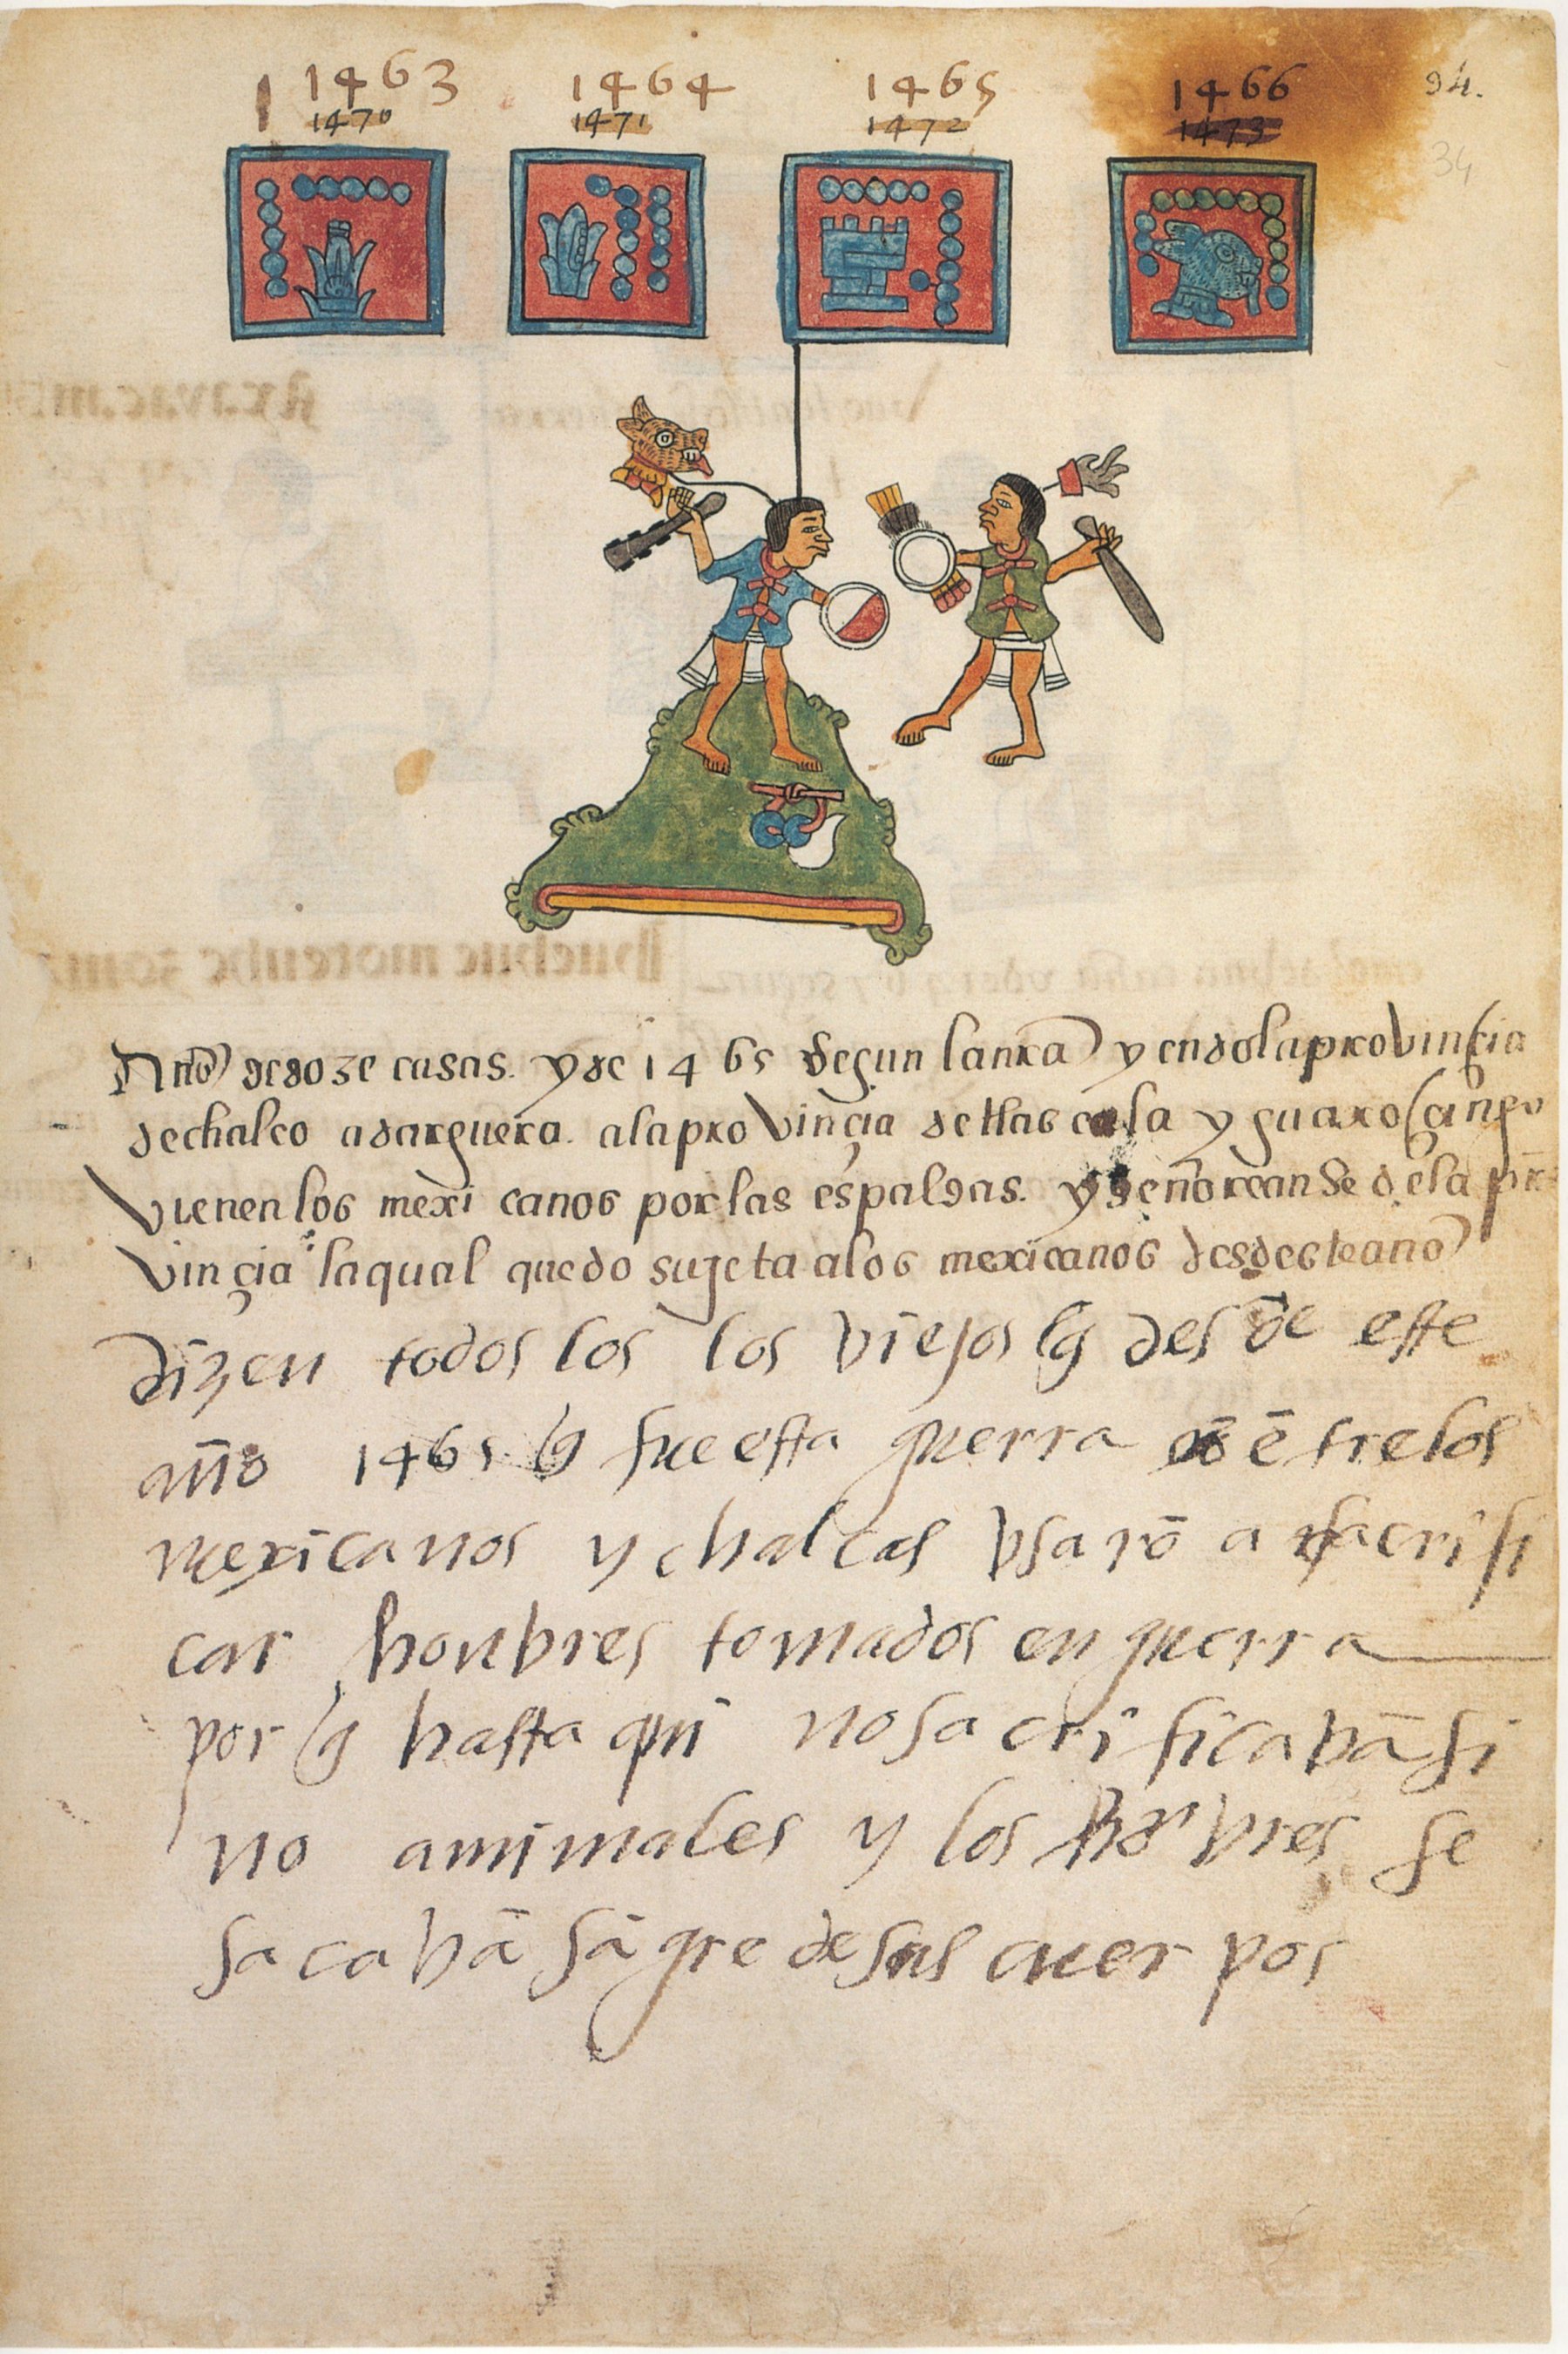 1463 1464 1465 1466 94.
1470 1471 1472 1473 34
Año de doze casas. y de 1465 segun la nr̄a yendo la provinçia
de chalco a dar guera. a la provinçia de tlascala y guaxoçingo
vienen los mexicanos por las espaldas. y señoreanse dela pro
vinçia la qual quedo sujeta a los mexicanos desde ste año
dizen todos los los viejos q̃ des de este
año 1465 q̃ fue esta guerra ētre los
mexicanos y chalcas vsarō a sacrifi
car honbres tomados en guerra
por q̃ hasta qui no sacrificavā si
no animales y los honbres se
sacavā sāgre de sus cuerpos